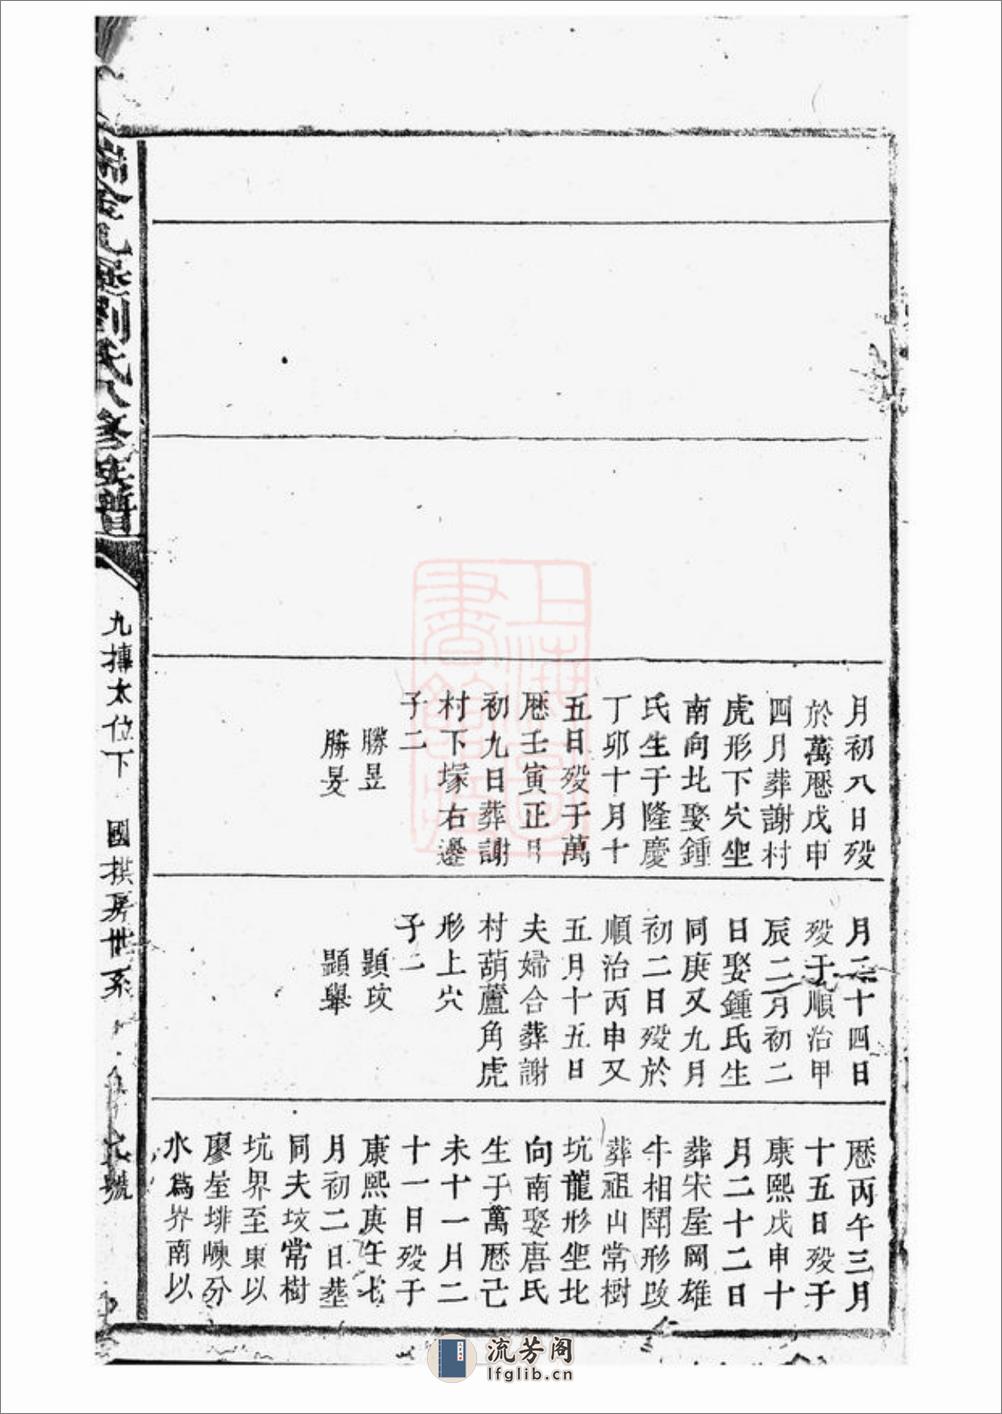 月初八日歿
於萬厯戊申
四月葬謝村
虎形下穴坐
南向北娶鍾
氏生于隆慶
丁卯十月十
五日歿于萬
厯壬寅正月
初九日葬謝
村下塚右邊
子二
勝昱
勝旻
月二十四日
歿于順治甲
辰二月初二
日娶鍾氏生
同庚又九月
初二日歿於
順治丙申又
五月十五日
夫婦合葬謝
村葫蘆角虎
形上穴
子二
顯玫
顯舉
厯丙午三月
十五日歿于
康熙戊申十
月二十二日
葬宋屋岡雄
牛相鬭形改
葬祖山常樹
坑龍形坐北
向南娶唐氏
生于萬厯己
未十一月二
十一日歿于
康熙庚午七
月初二日塟
同夫坟常樹
坑界至東以
廖屋排崠分
水為界南以
劉氏八修族譜
九摶太位下
國棋房世系
上海圖書館藏
流芳阁
lfglib.cn